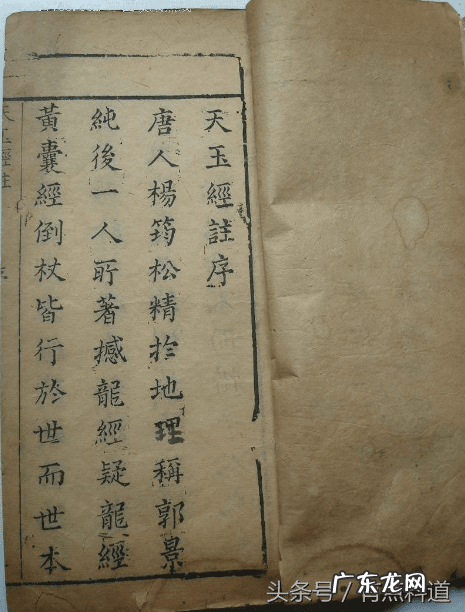 天玉經註序
唐人楊筠松精扵地理稱郭景
純後一人所著撼龍經疑龍經
黃囊經倒杖皆行於世而世本
天玉經註
序
头条号
广东龙网